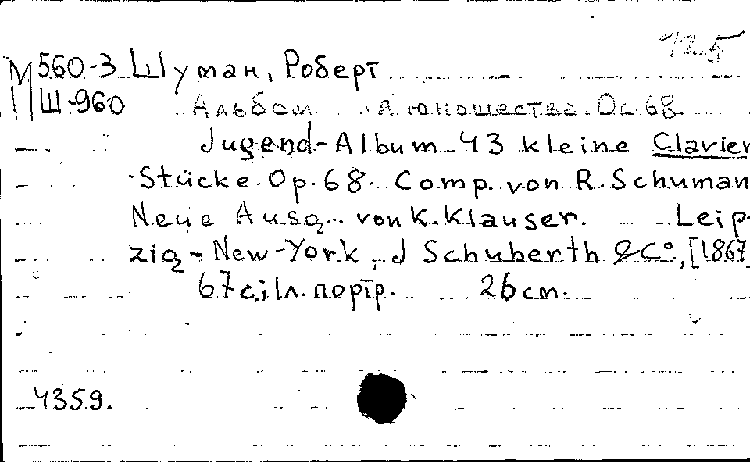 М 560-3 Шуман, Роберт
Ш-960 Альбом юношества. Ос. 68.
Jugend-Album 43 kleine Clavier
Stücke Op. 68. Comp. von R. Schuman
Neue Ausg. von K. Klauser. Leip-
zig - New-York, J Schuberth & Co, [1867
67 с. ил. портр. 26 cm.
4359.